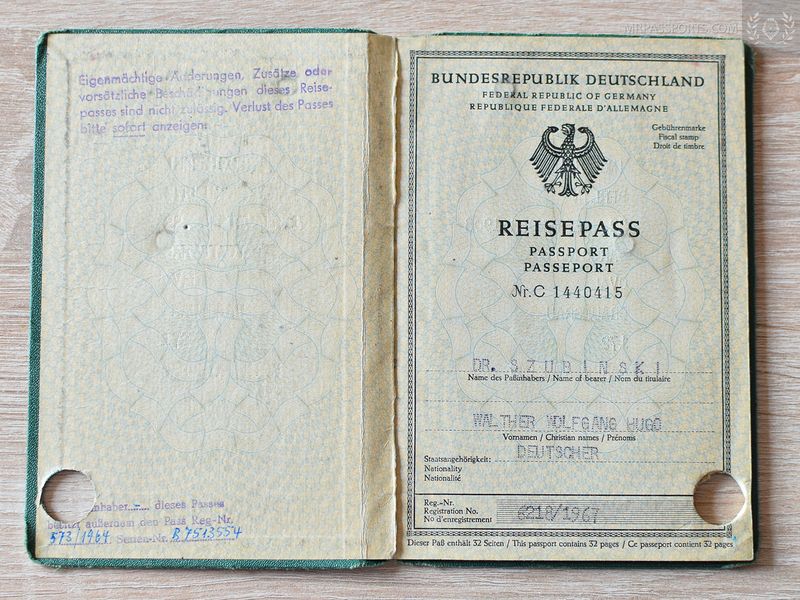 MRPASSPORTS.COM
Eigenmächtige Änderungen, Zusätze oder
vorsätzliche Beschädigungen dieses Reise-
passes sind nicht zulässig. Verlust des Passes
bitte sofort anzeigen.
dieses Passes
besitzt außerdem den Pass Reg-Nr.
573/1964 Serien-Nr. B7513554
BUNDESREPUBLIK DEUTSCHLAND
FEDERAL REPUBLIC OF GERMANY
REPUBLIQUE FEDERALE D'ALLEMAGNE
Gebührenmarke
Fiscal stamp
Droit de timbre
REISEPASS
PASSPORT
PASSEPORT
Nr. C 1440415
DR. SZUBINSKI
Name des Paßinhabers / Name of bearer / Nom du titulaire
WALTHER WOLFGANG HUGO
Vornamen / Christian names / Prénoms
Staatsangehörigkeit: DEUTSCHER
Nationality
Nationalité
Reg.-Nr.
Registration No. 6218/1967
No d'enregistrement
Dieser Paß enthält 32 Seiten / This passport contains 32 pages / Ce passeport contient 32 pages